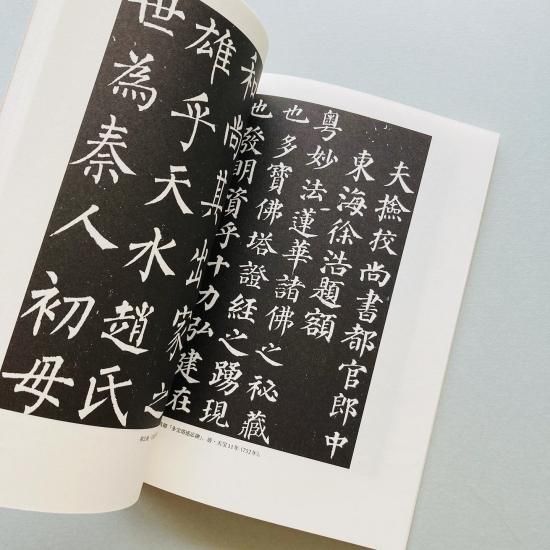 夫撿挍尚書都官郎中
東海徐浩題額
粤妙法蓮華諸佛之祕藏
也多寶佛塔證經之踴現
也發明資乎十力弘建在
和尚其出家之
雄乎天水趙氏
世為秦人初母
「多宝塔感応碑」、唐・天宝11年(752年)。